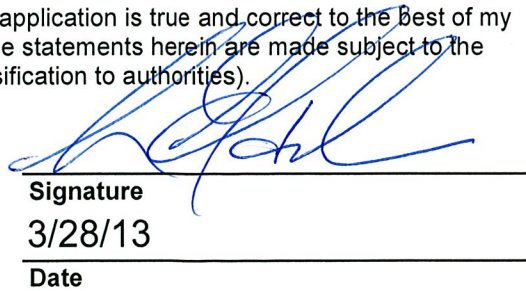 application is true and correct to the best of my
e statements herein are made subject to the
sification to authorities).
Signature
3/28/13
Date